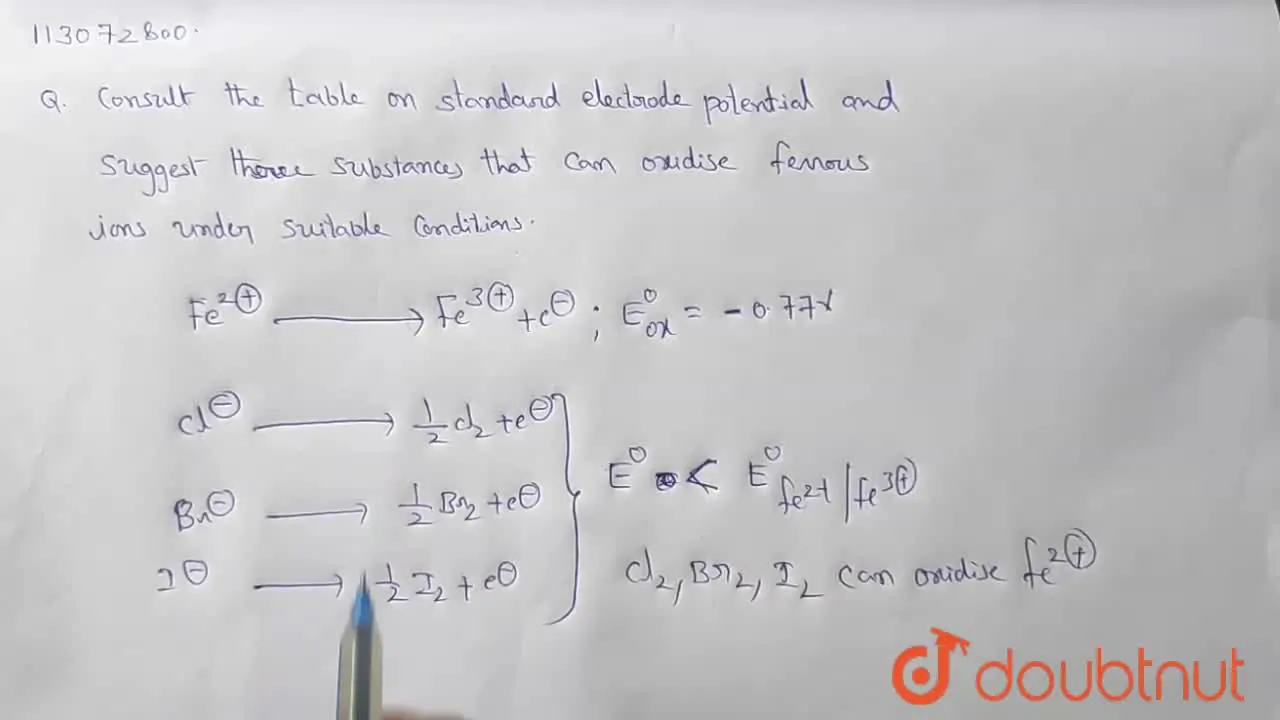 113072800.
Q. Consult the table on standard electrode potential and
suggest three substances that can oxidise ferrous
ions under suitable conditions.
Fe²⊕ ⟶ Fe³⊕ + e⊖ ; E⁰ₒₓ = -0.77V
Cl⊖ ⟶ 1/2 Cl₂ + e⊖
Br⊖ ⟶ 1/2 Br₂ + e⊖
I⊖ ⟶ 1/2 I₂ + e⊖
E⁰ < E⁰ fe²⁺/fe³⊕
Cl₂, Br₂, I₂ can oxidise fe²⊕
doubtnut